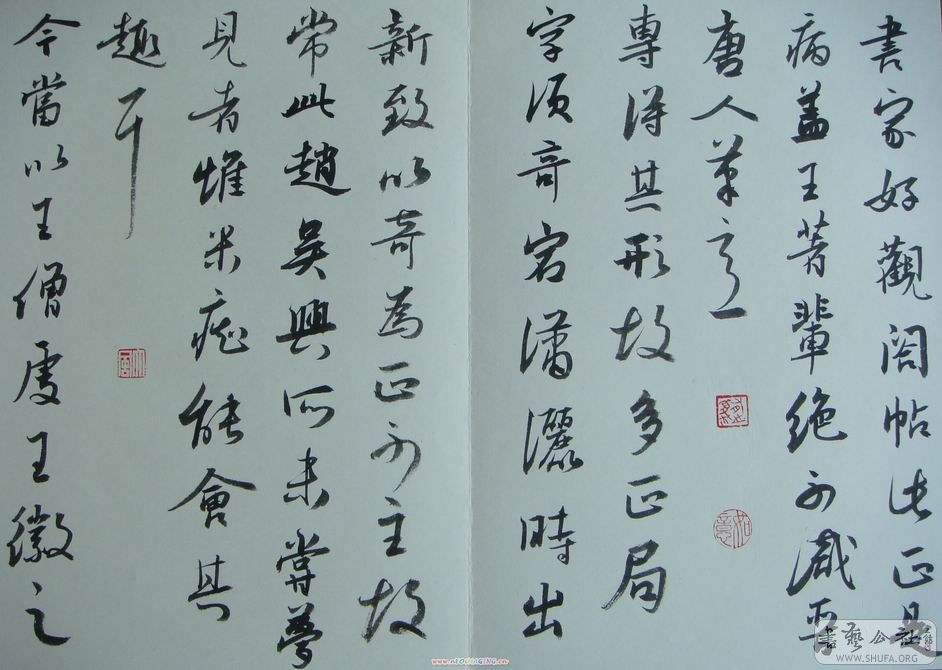 書家好觀閣帖此正是
病盖王著輩絶不識晉
唐人筆意
專得其形故多正局
字須奇宕瀟灑時出
新致以奇為正不主故
常此趙吳興所未嘗夢
見者惟米癡能會其
趣耳
今當以王僧虔王徽之
書藝公社
WWW.SHUFA.ORG